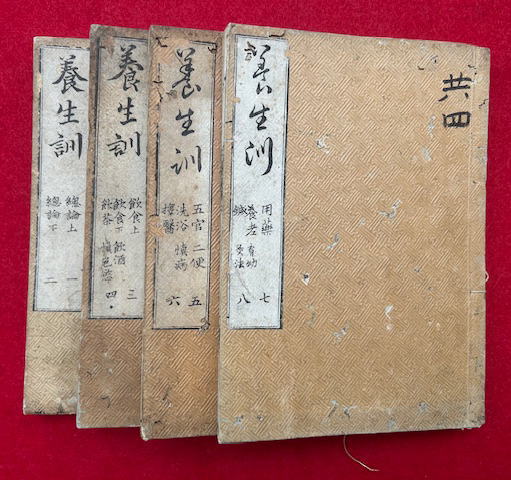 養生訓
總論上 一
總論下 二
養生訓
飲食上 三
飲食下 飲酒
飲茶 慎色慾 四
養生訓
五官 二便 五
洗浴 慎病
擇醫 六
養生訓
用藥 七
養老 育幼
鍼 灸法 八
共四